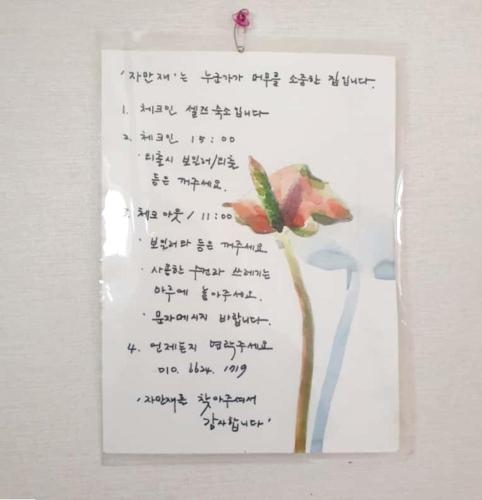 '자만재'는 누군가가 머무를 소중한 집입니다.
1. 체크인 셀프숙소입니다
2. 체크인 15:00
· 외출시 보일러/외출
등은 꺼주세요.
3. 체크아웃 / 11:00
· 보일러와 등은 꺼주세요
· 사용한 수건과 쓰레기는
마루에 놓아주세요.
· 문자메시지 바랍니다.
4. 언제든지 연락주세요
010. 6624. 1719
'자만재를 찾아주셔서
감사합니다'